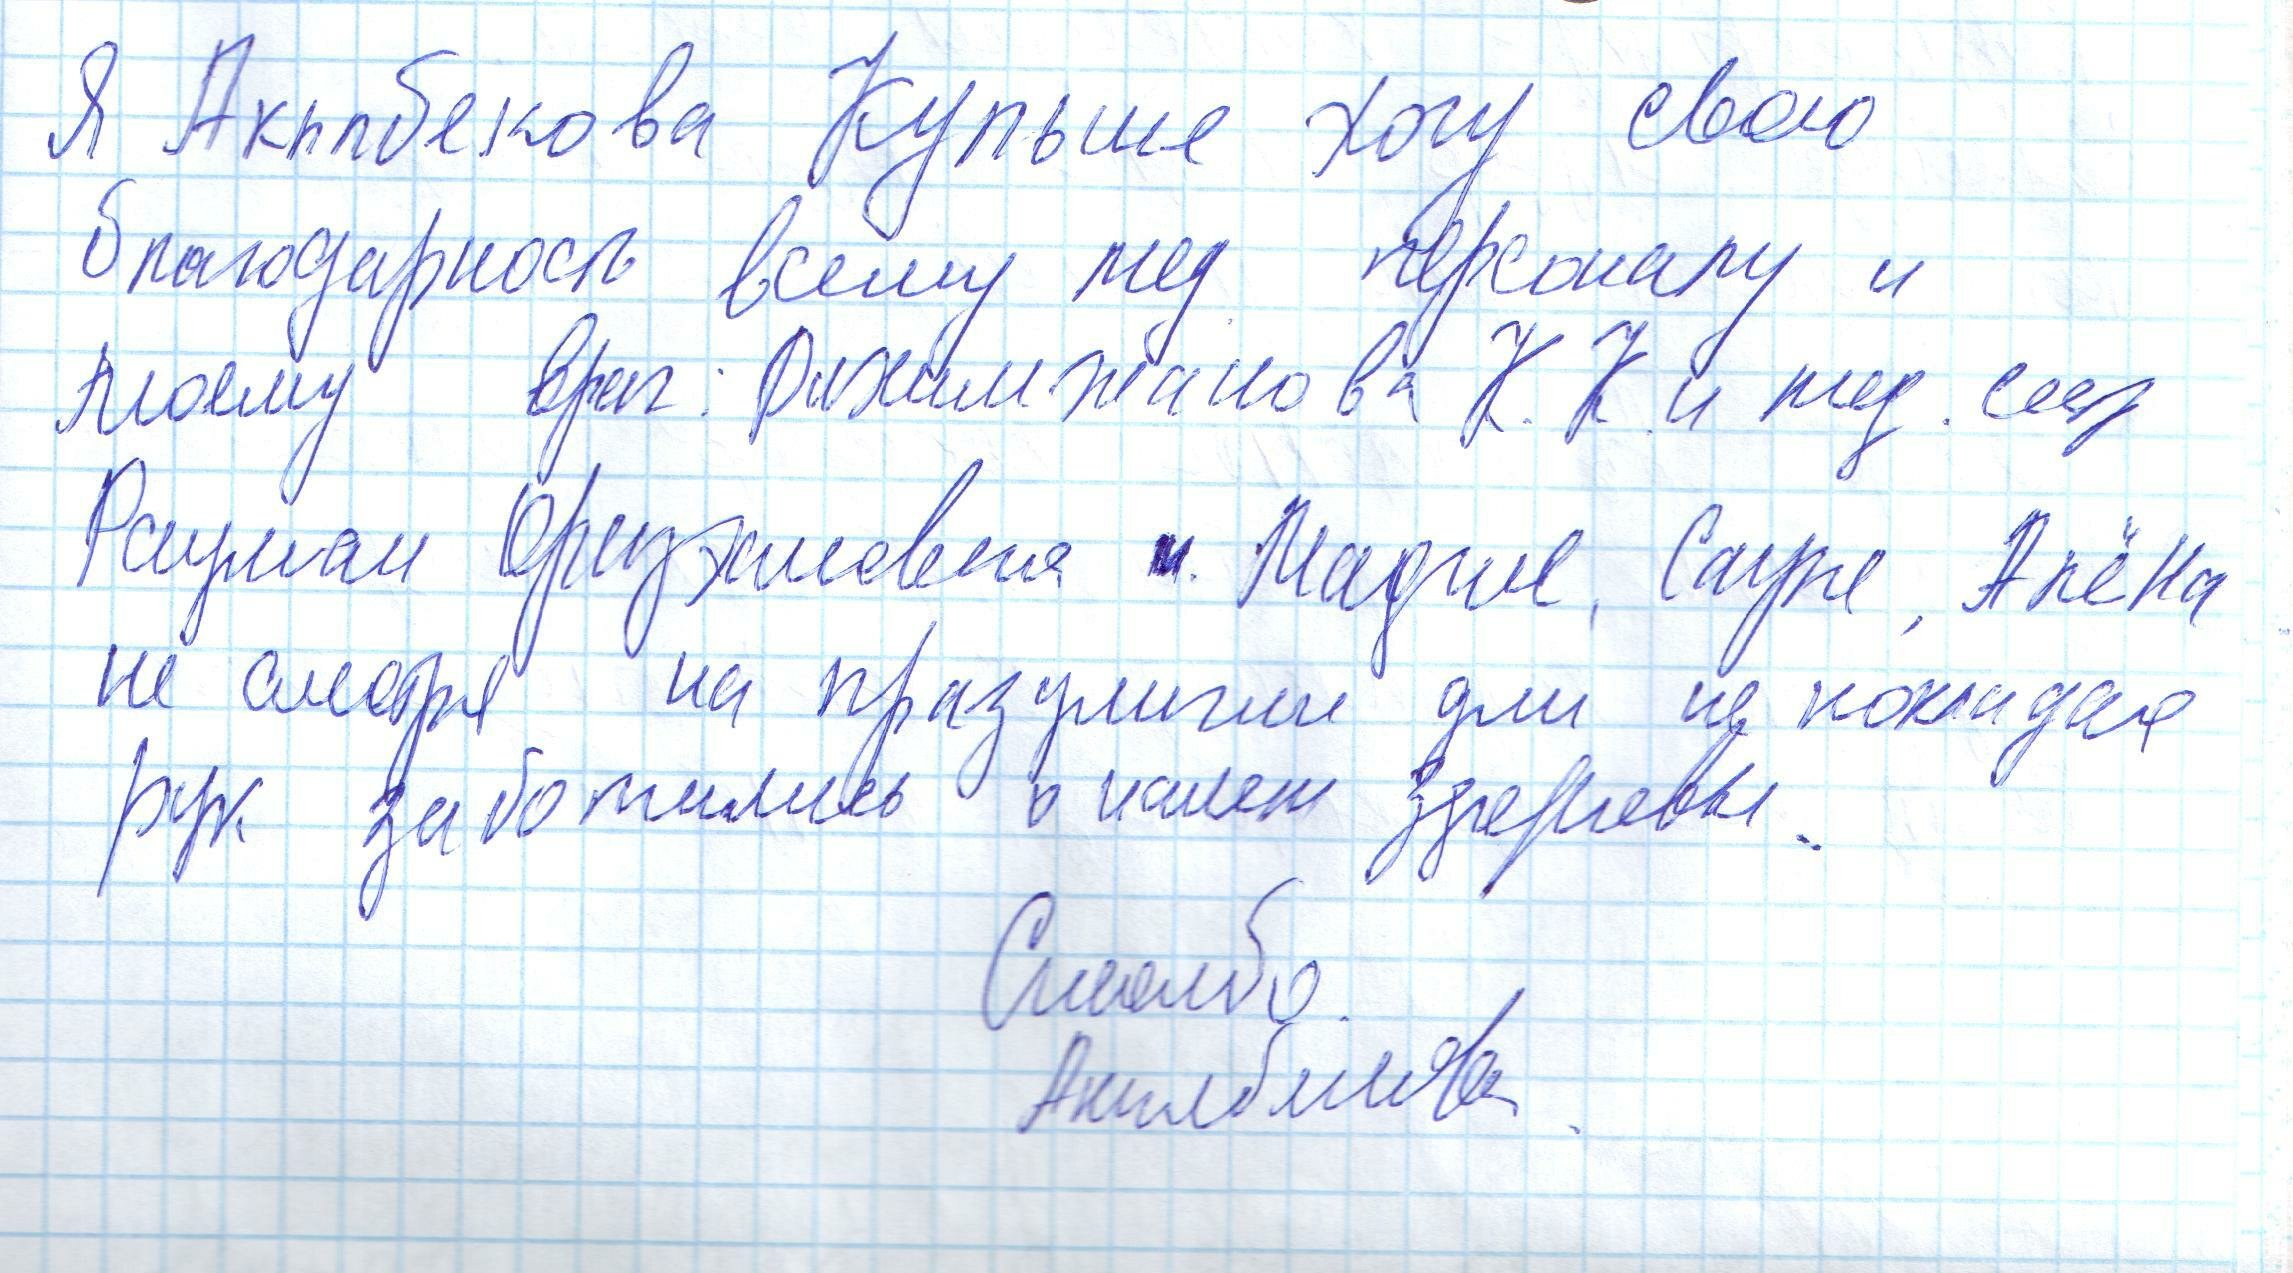 Я Акылбекова Кульше хочу свою
благодарность всему мед персоналу и
моему врач: Рахимжанова К.К. и мед. сест
Раушан и Мадине, Сауле, Алёна
не смотря на праздничн дни не покладая
рук заботились о нашем здоровье.
Спасибо.
Акылбекова.